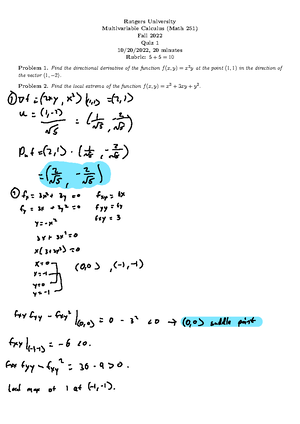 Rutgers University
Multivariable Calculus (Math 251)
Fall 2022
Quiz 1
10/20/2022, 20 minutes
Rubric: 5 + 5 = 10
Problem 1. Find the directional derivative of the function f(x, y) = x²y at the point (1, 1) in the direction of
the vector (1, −2).
Problem 2. Find the local extrema of the function f(x, y) = x³ + 3xy + y³.
① ∇f = (2xy, x²)|(1,1) = (2,1)
u = (1,-2)/√5 = (1/√5, -2/√5)
Duf = (2,1) · (1/√5, -2/√5)
= (2/√5, -2/√5)
② fx = 3x² + 3y = 0 fxx = 6x
fy = 3x + 3y² = 0 fyy = 6y
y = -x² fxy = 3
3x + 3x² = 0
x(3+3x²) = 0
x = 0
x = -1 (0,0), (-1,-1)
y = 0
y = -1
fxx fyy - fxy² |(0,0) = 0 - 3² < 0 → (0,0) saddle point
fxx|(-1,-1) = -6 < 0.
fxx fyy - fxy² = 36 - 9 > 0.
Local max of 1 at (-1,-1).